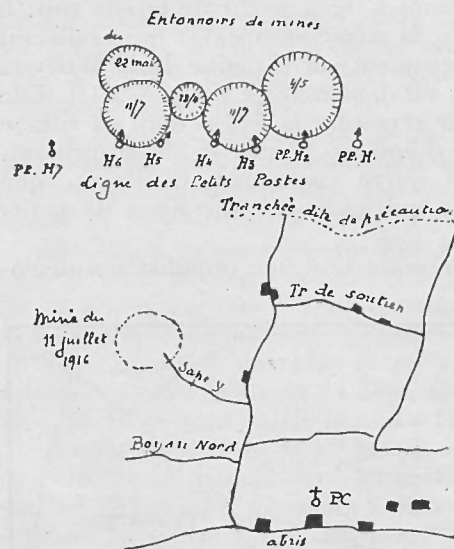 Entonnoirs de mines
du
22 mai
11/7
11/7
4/5
PP. H7
H6
H5
H4
H3
PP. H2
PP. H1
Ligne des Petits Postes
Tranchée dite de précaution
Tr de soutien
Mine du
11 juillet
1916
Sape y
Boyau Nord
PC
abris